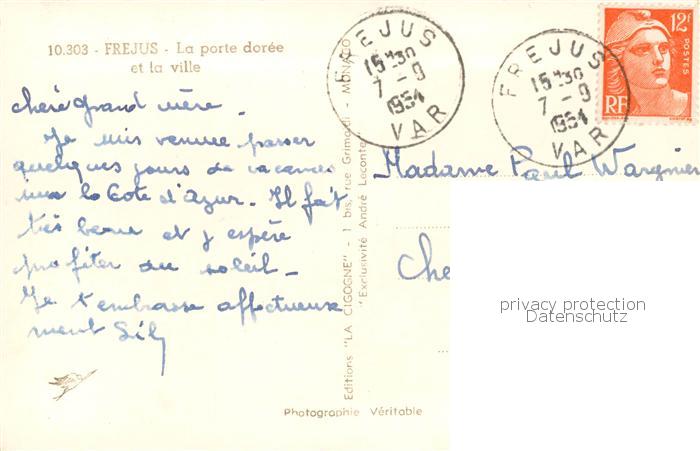 10.303 - FREJUS - La porte dorée
et la ville
chère grand mère.
Je suis venue passer
quelques jours de vacances
sur la Cote d'Azur. Il fait
très beau et j'espère
profiter du soleil -
Je t'embrasse affectueuse
ment
Editions "LA CIGOGNE" - 1 bis, rue Grimaldi - MONACO
"Exclusivité André Leconte"
FREJUS
15H30
7-9
1954
VAR
FREJUS
15H30
7-9
1954
VAR
12F
POSTES
RF
Madame Paul Wargnier
Che
privacy protection
Datenschutz
Photographie Véritable